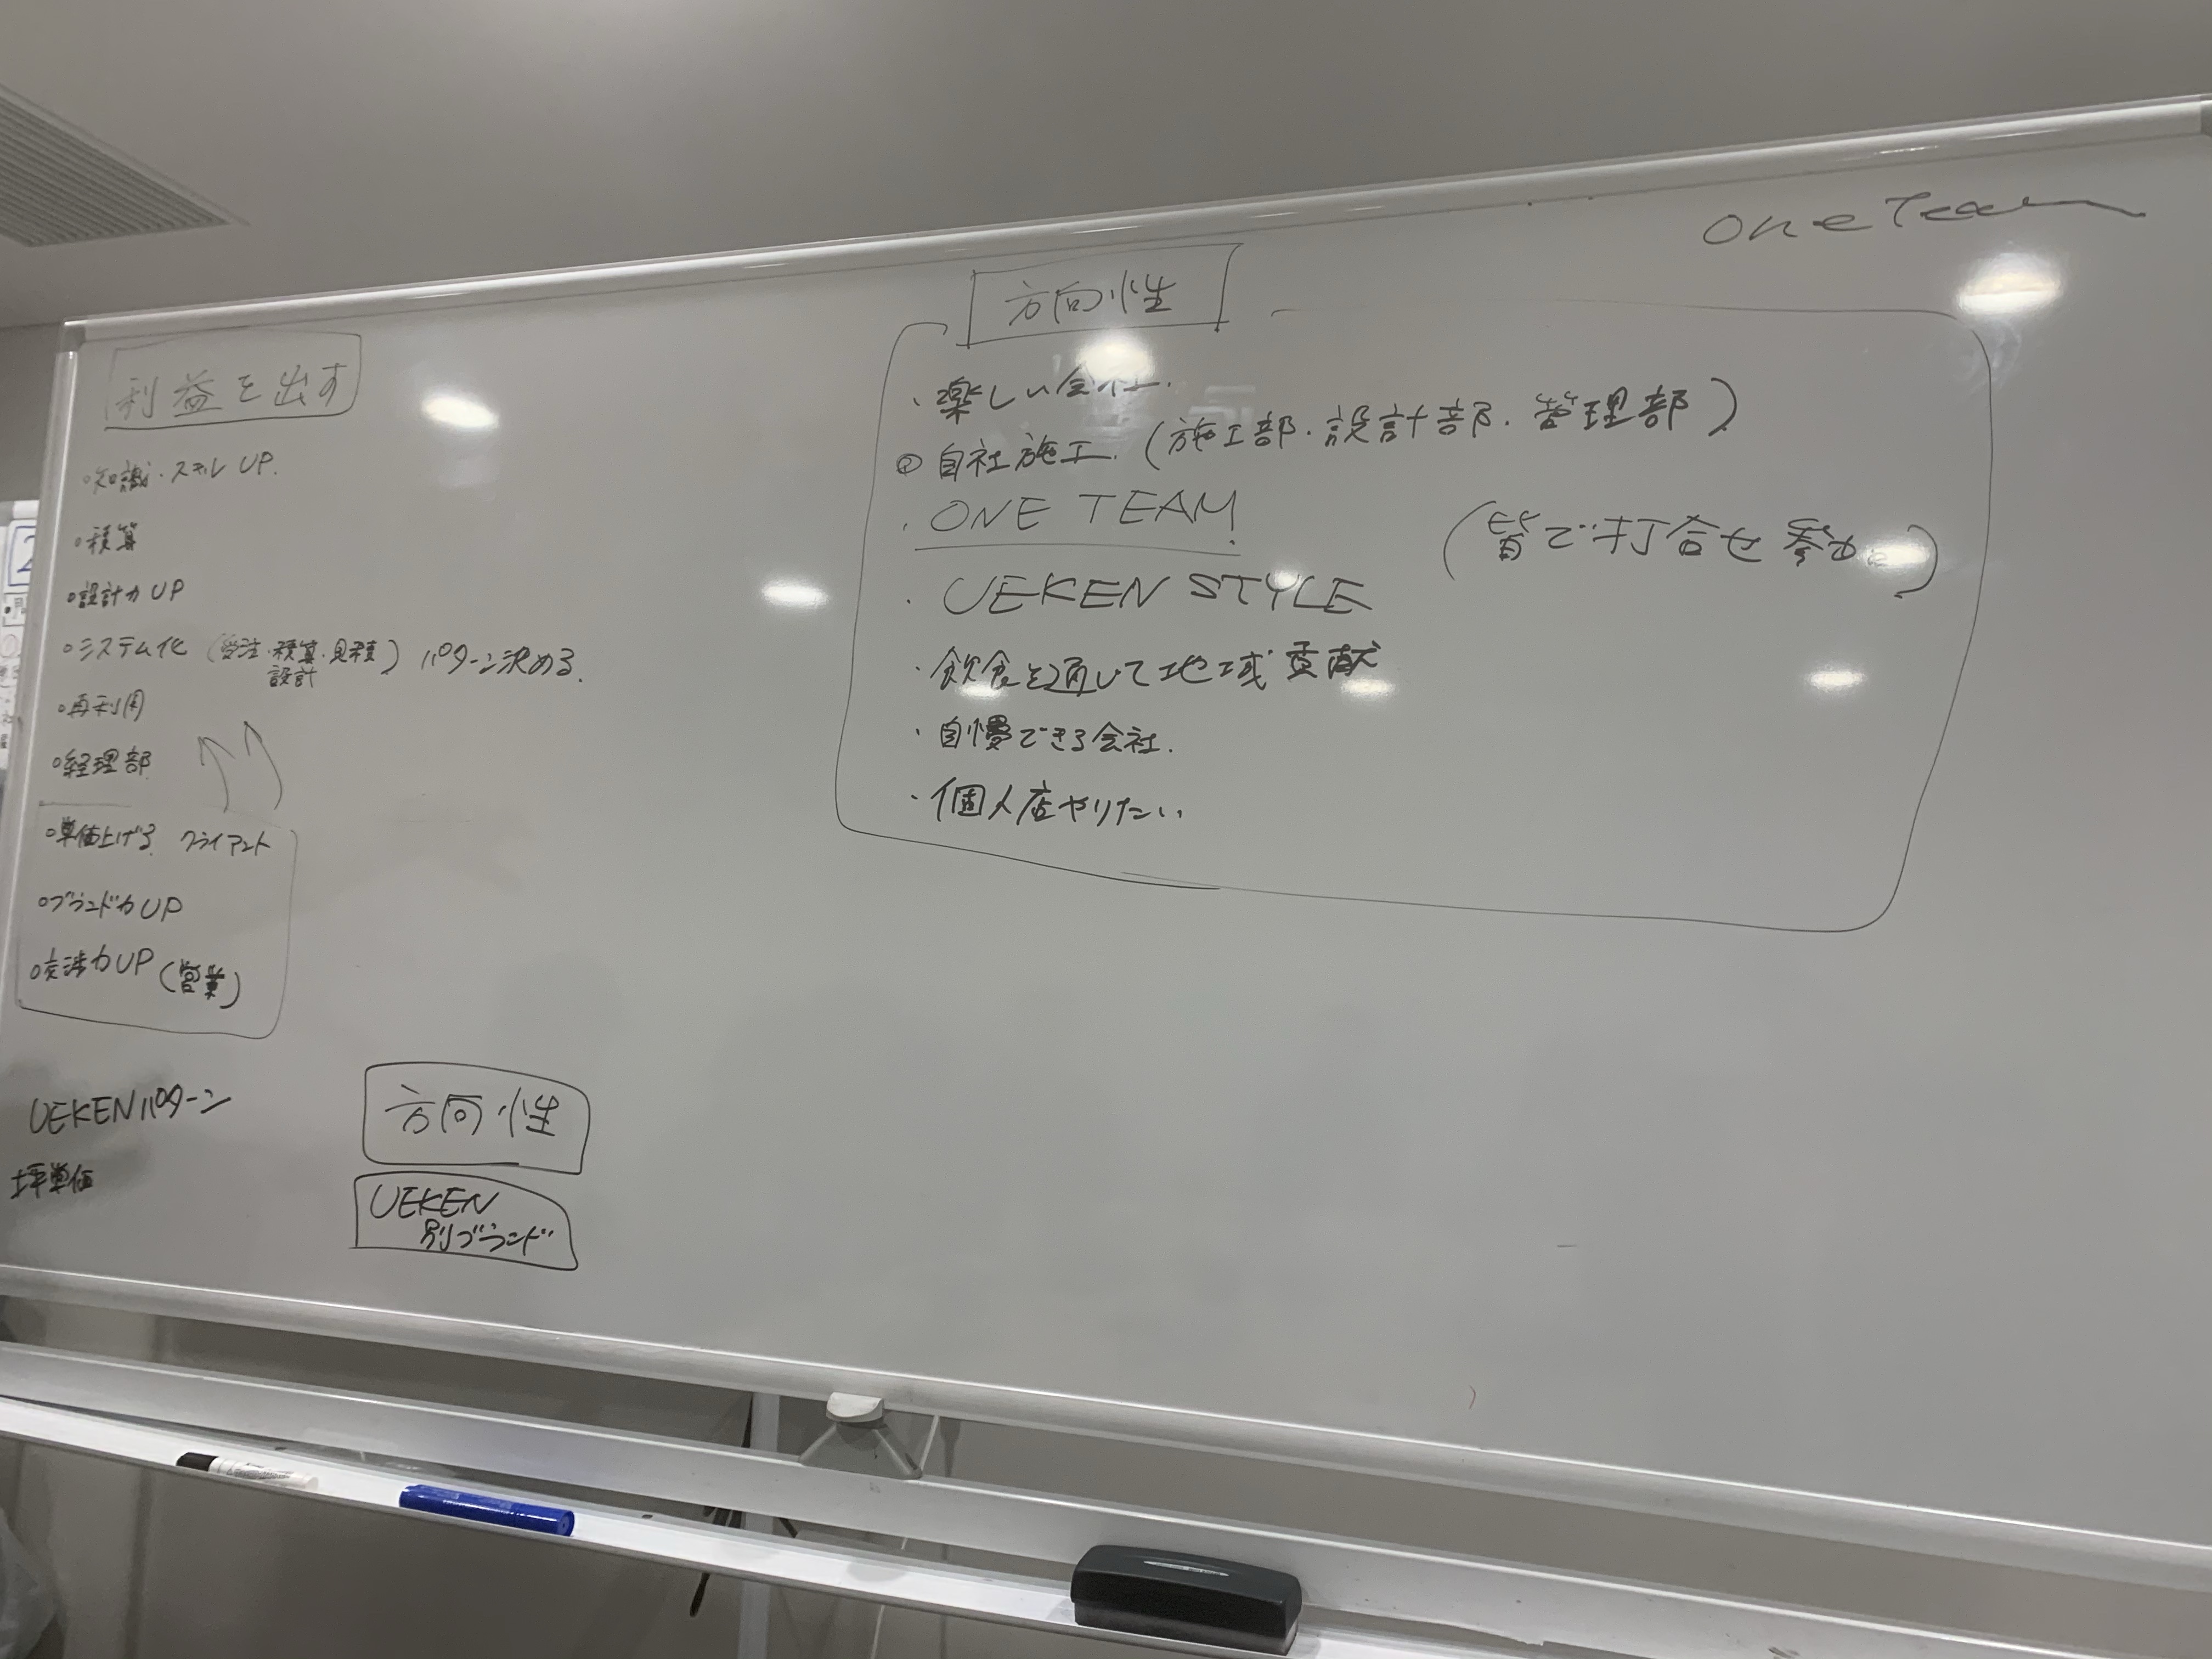 利益を出す
・知識・スキルUP.
・積算
・設計力UP
・システム化 (受注・積算・見積) パターン決める.
設計
・再利用
・経理部
・単価上げる クライアント
・ブランド力UP
・交渉力UP (営業)
UEKENパターン
坪単価
方向性
UEKEN
別ブランド
one Team
方向性
・楽しい会社.
◎自社施工. (施工部・設計部・管理部)
・ONE TEAM
(皆で打合せ参加)
・UEKEN STYLE
・飲食を通して地域貢献
・自慢できる会社.
・個人店やりたい